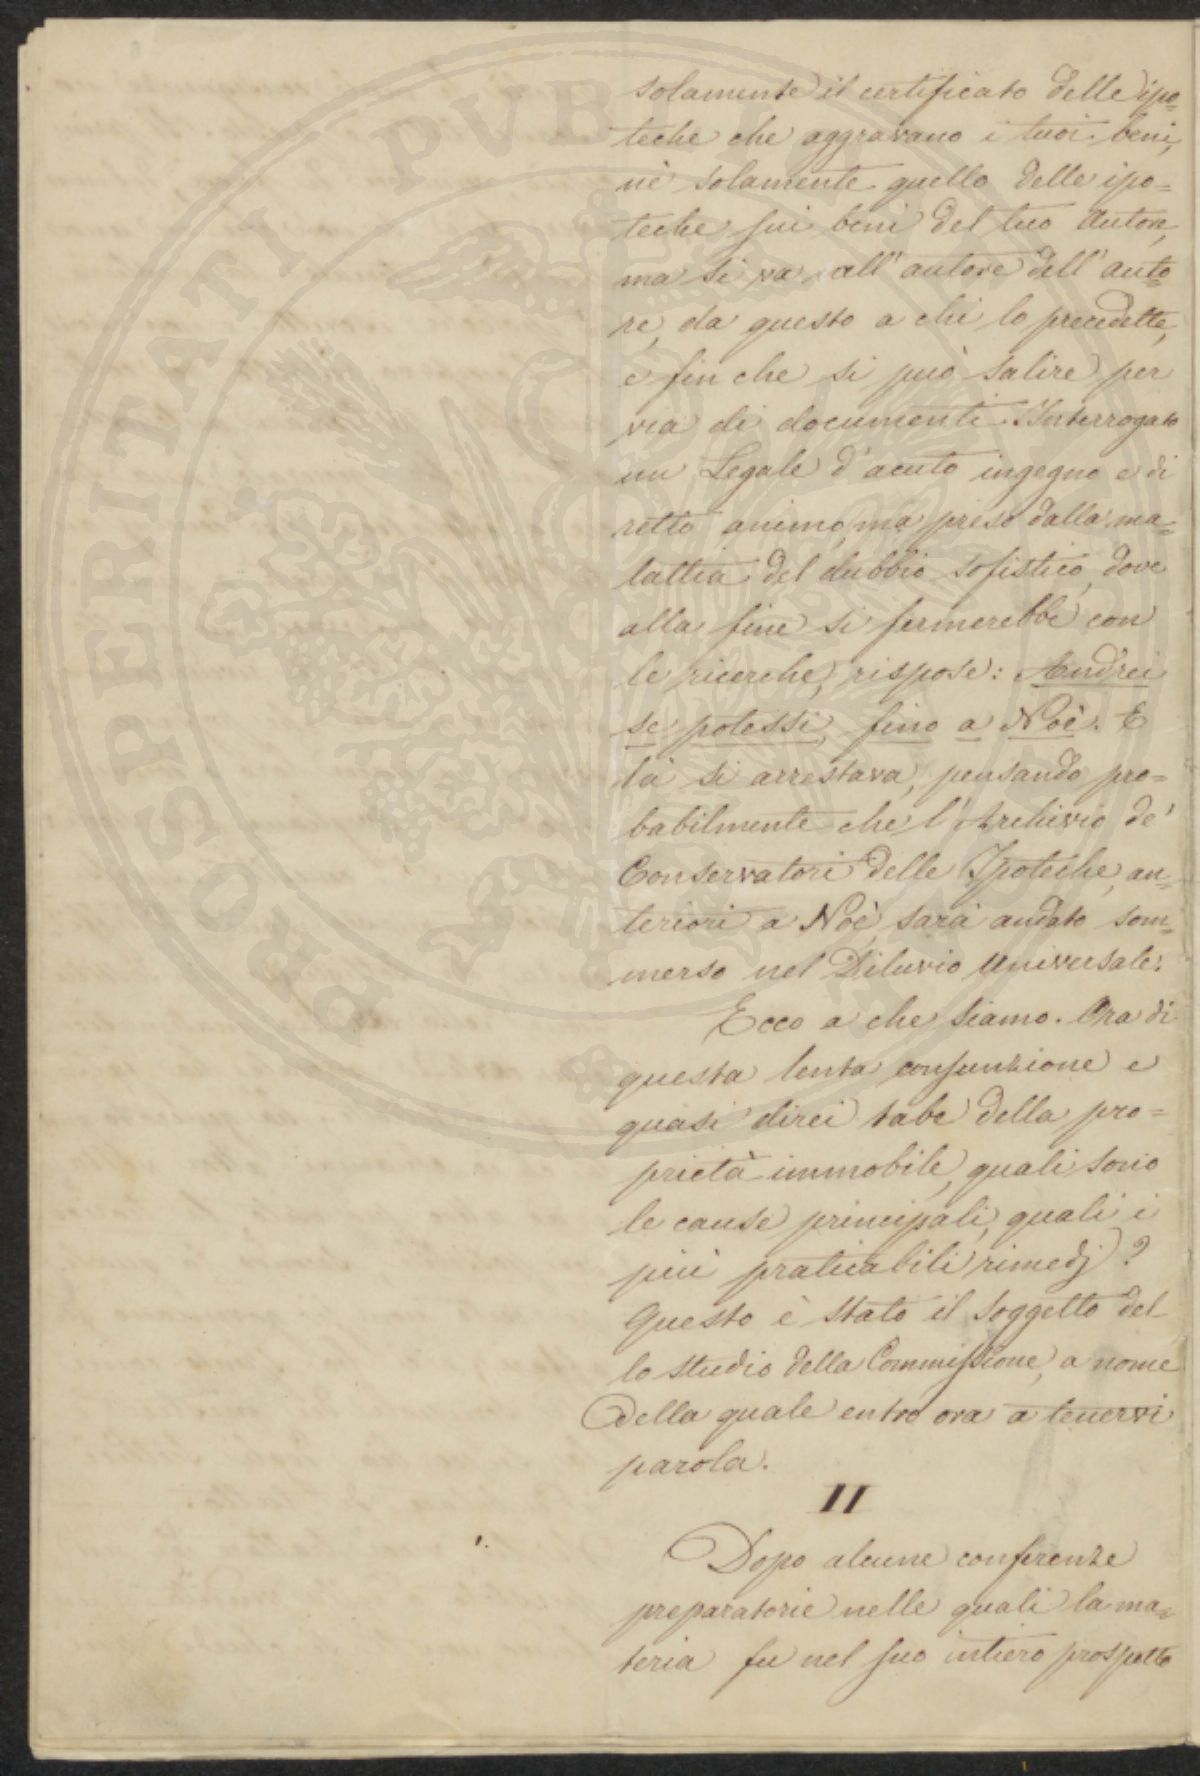 solamente il certificato delle ipo=
teche che aggravano i tuoi beni,
nè solamente quello delle ipo=
teche sui beni del tuo autore,
ma si va all'autore dell'auto=
re, da questo a chi lo precedette,
e fin che si può salire per
via di documenti. Interrogato
un Legale d'acuto ingegno e di
retto animo, ma preso dalla ma=
lattia del dubbio sofistico, dove
alla fine si fermerebbe con
le ricerche, rispose: Andrei
se potessi, fino a Noè. E
là si arrestava, pensando pro=
babilmente che l'Archivio de'
Conservatori delle Ipoteche, an=
teriori a Noè, sarà andato som=
merso nel Diluvio Universale.
Ecco a che siamo. Ora di
questa lenta consunzione e
quasi direi tabe della pro=
prietà immobile, quali sono
le cause principali, quali i
più praticabili rimedj?
Questo è stato il soggetto del
lo studio della Commissione, a nome
della quale entro ora a tenervi
parola.
II
Dopo alcune conferenze
preparatorie nelle quali la ma=
teria fu nel suo intiero prospetto
PROSPERITATI PUBLICAE